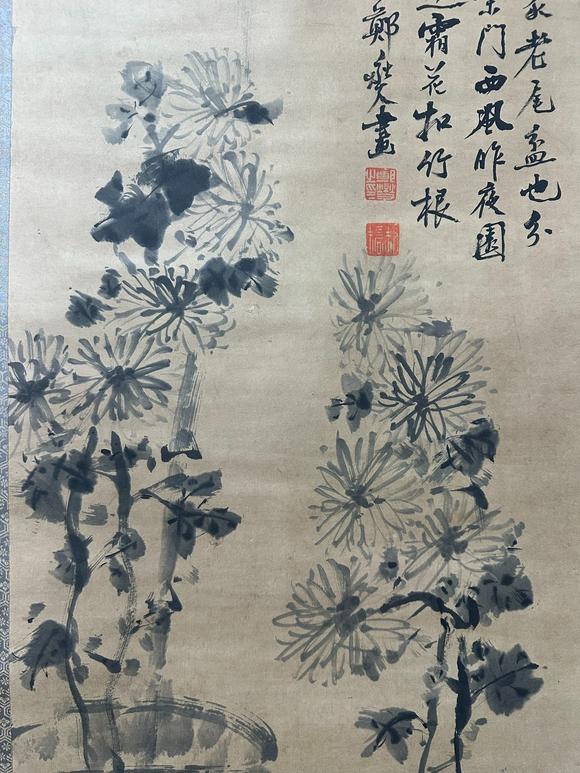 家老瓦盆也分
門西風昨夜園
霜花扣竹根
鄭燮畫